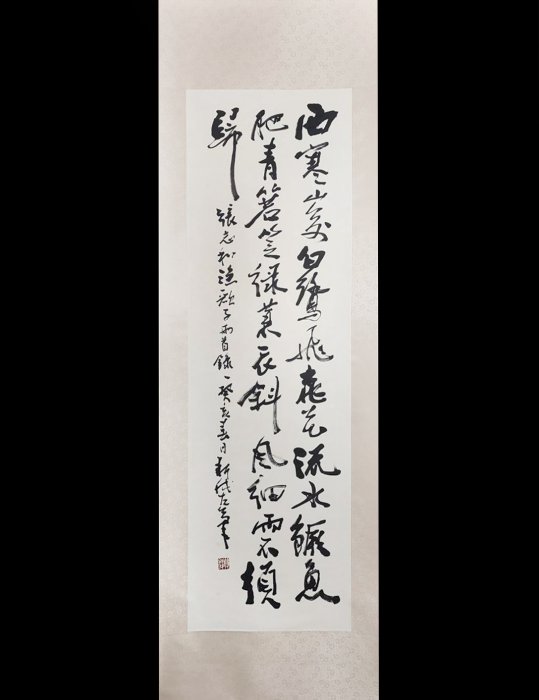 西塞山邊白鷺飛桃花流水鱖魚
肥青箬笠綠蓑衣斜風細雨不須
歸
張志和漁歌子兩首錄一癸亥春月